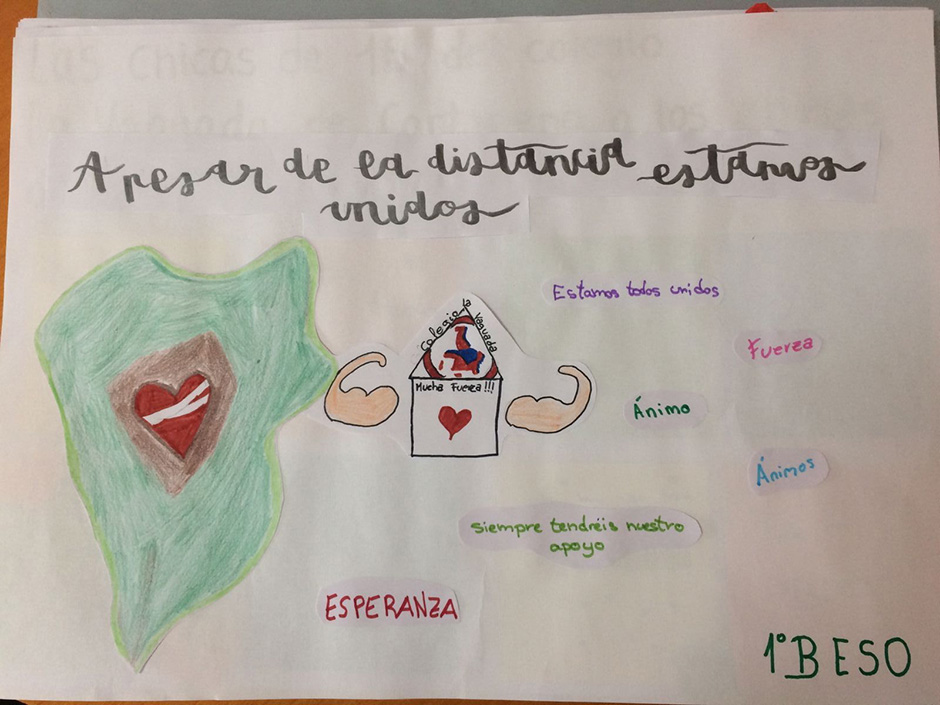 A pesar de la distancia estamos
unidos
Estamos todos unidos
Colegio la Vaguada
Fuerza
Mucha Fuerza!!!
Ánimo
Ánimos
siempre tendréis nuestro
apoyo
ESPERANZA
1ºB ESO